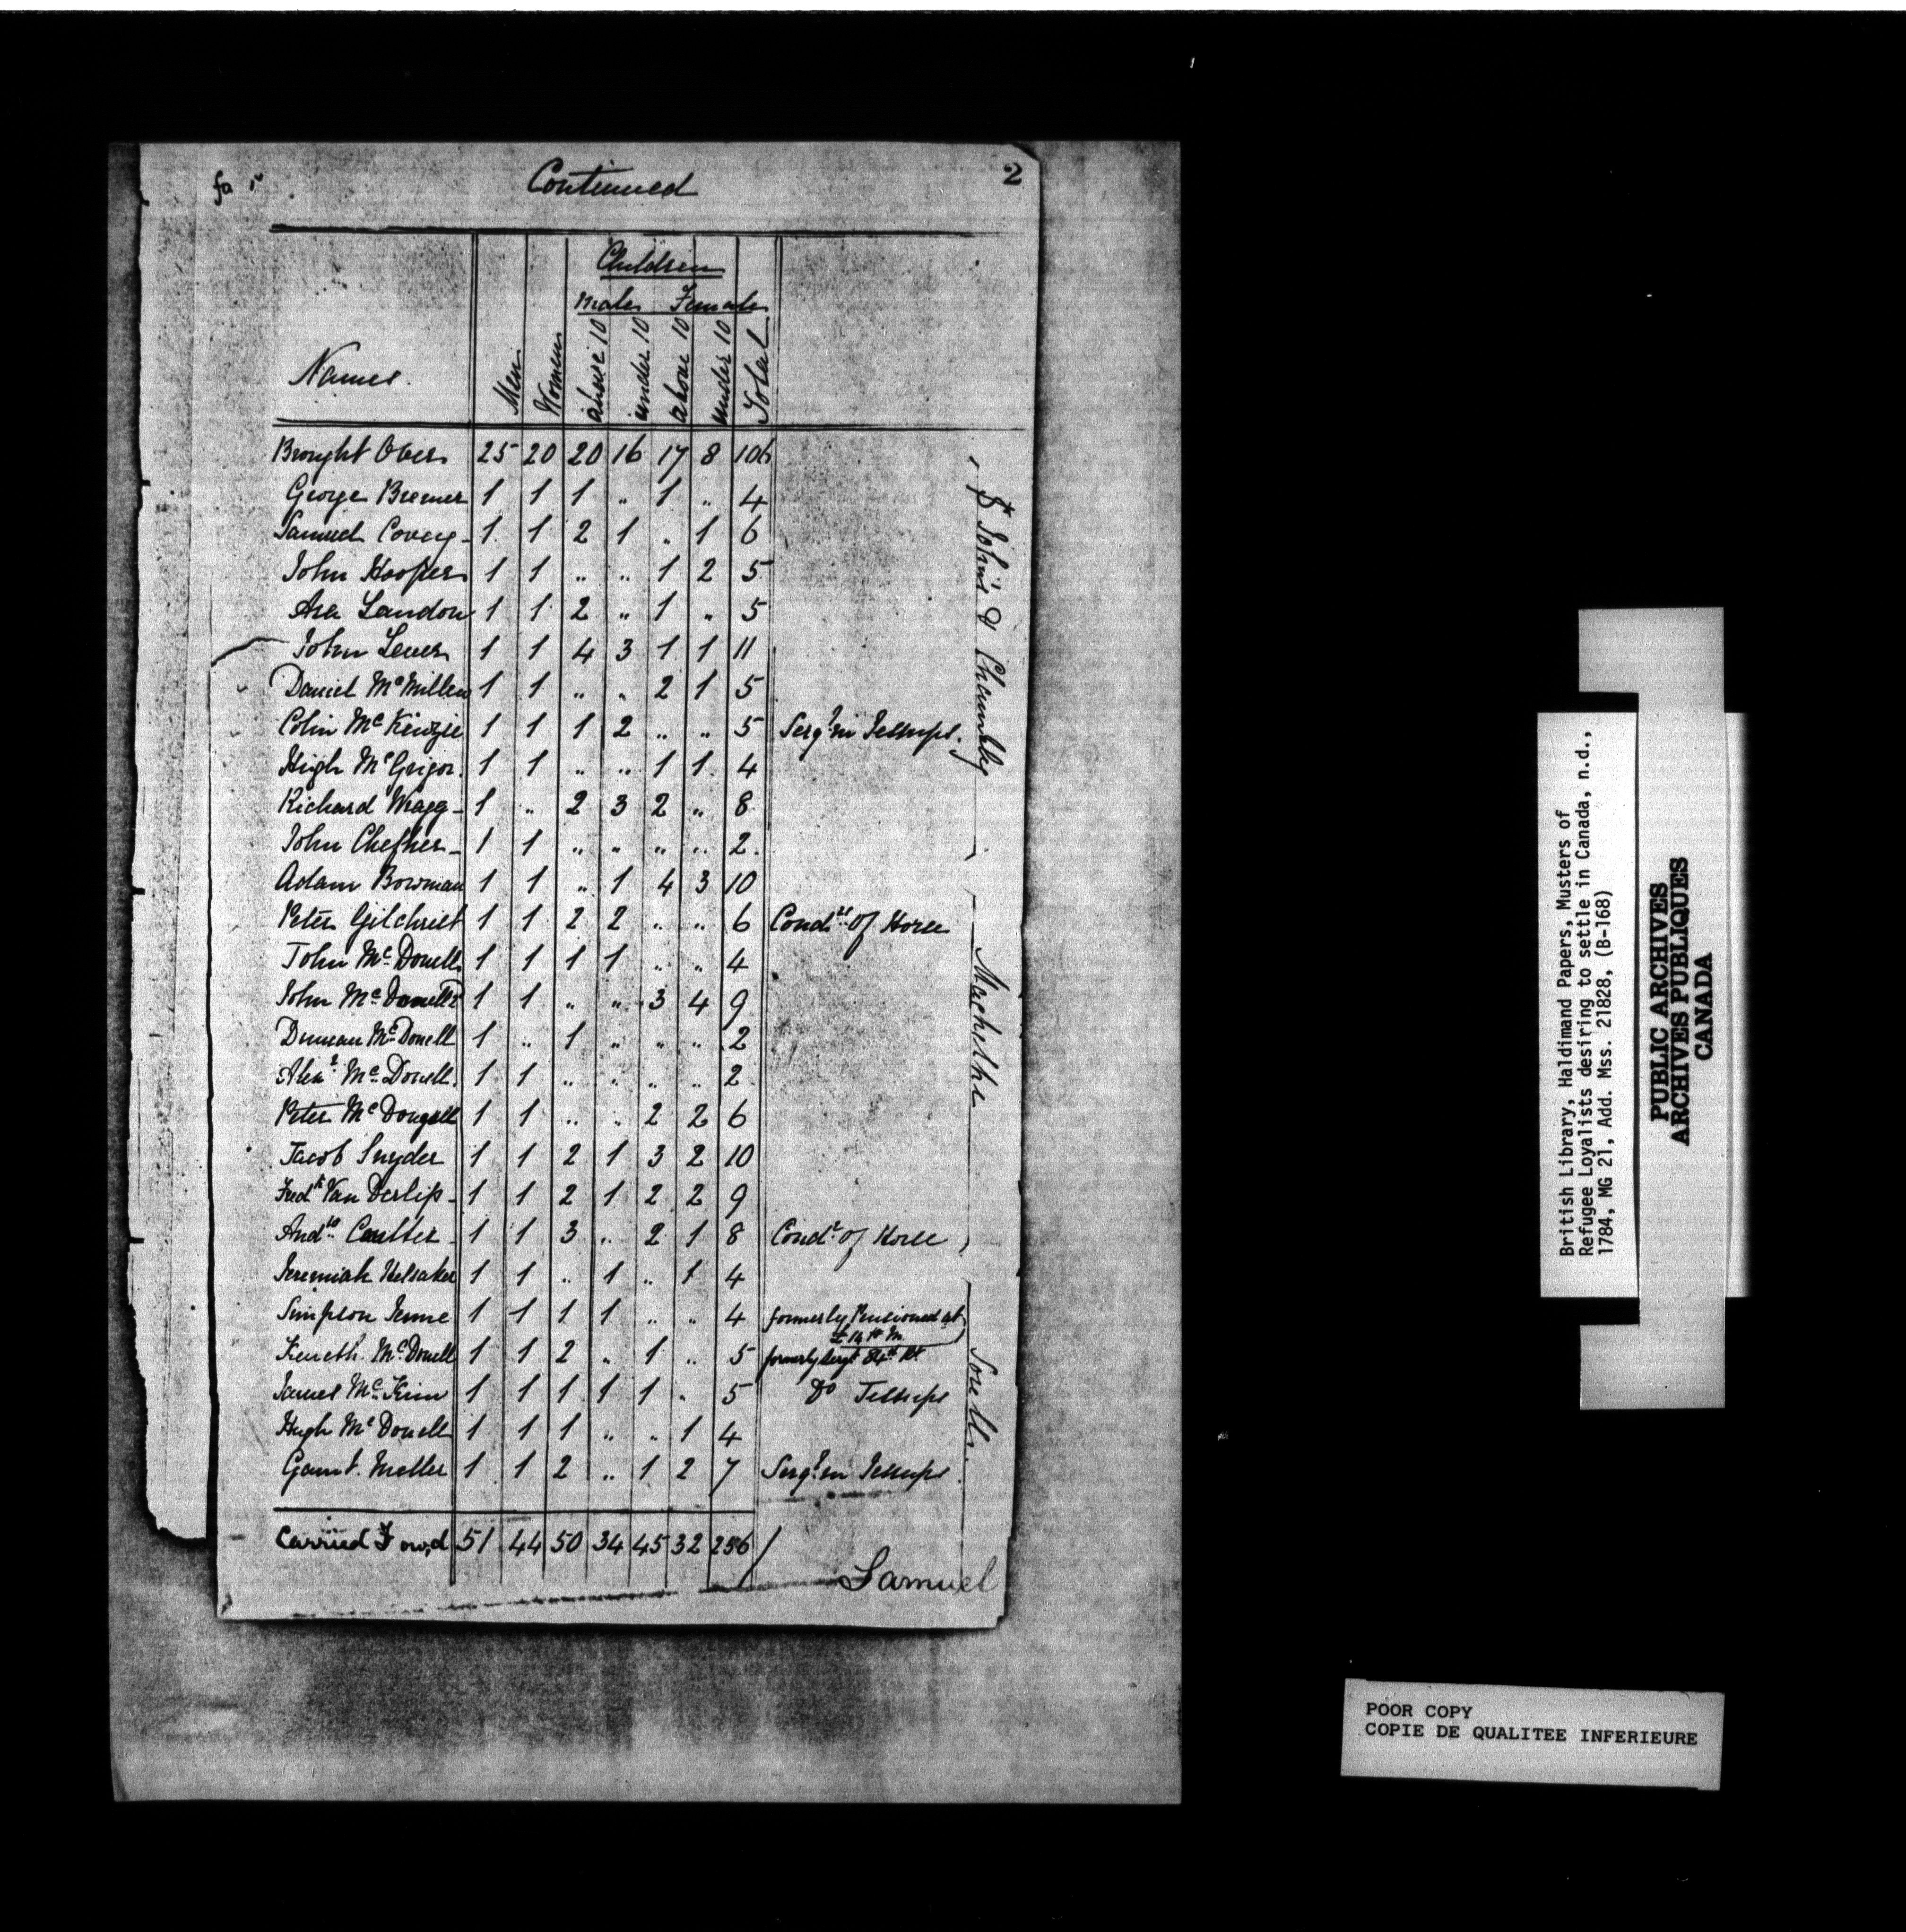 Continued
2
Children
Males Females
Names. Men Women above 10 under 10 above 10 under 10 Total
Brought Over 25 20 20 16 17 8 106
George Bremer 1 1 1 " 1 " 4
Samuel Covey - 1 1 2 1 " 1 6
John Hooper 1 1 " " 1 2 5
Asa Landon 1 1 2 " 1 " 5
John Lever 1 1 4 3 1 1 11
Daniel McMillen 1 1 " " 2 1 5
Colin McKenzie 1 1 1 2 " " 5 Sergt. in Jessups.
High McGrigor. 1 1 " " 1 1 4
Richard Wragg - 1 " 2 3 2 " 8
John Chesher - 1 1 " " " " 2.
Adam Bowman 1 1 " 1 4 3 10
Peter Gilchrist 1 1 2 2 " " 6 Condr. of Horse
John McDonell 1 1 1 1 " " 4
John McDonell 2 1 1 " " 3 4 9
Duncan McDonell 1 " 1 " " " 2
Alexr McDonell. 1 1 " " " " 2
Peter McDougall 1 1 " " 2 2 6
Jacob Snyder 1 1 2 1 3 2 10
Fredk Van Derlip - 1 1 2 1 2 2 9
Andw. Coulter - 1 1 3 " 2 1 8 Condr. of Horse
Jeremiah Helsaker 1 1 " 1 " 1 4
Simpson Jenne 1 1 1 1 " " 4 formerly Pensioned at
£14 H M.
Keneth McDonell 1 1 2 " 1 " 5 formerly Sergt 84th Rt.
James McKim 1 1 1 1 1 " 5 Do Jessups
Hugh McDonell 1 1 1 " " 1 4
Gaunt. Meller 1 1 2 " 1 2 7 Sergt. in Jessups
St Johns & Chambly
Machelhe
Sorell.
Carried Forwd 51 44 50 34 45 32 256
Samuel
British Library, Haldimand Papers, Musters of
Refugee Loyalists desiring to settle in Canada, n.d.,
1784, MG 21, Add. Mss. 21828, (B-168)
PUBLIC ARCHIVES
ARCHIVES PUBLIQUES
CANADA
POOR COPY
COPIE DE QUALITEE INFERIEURE